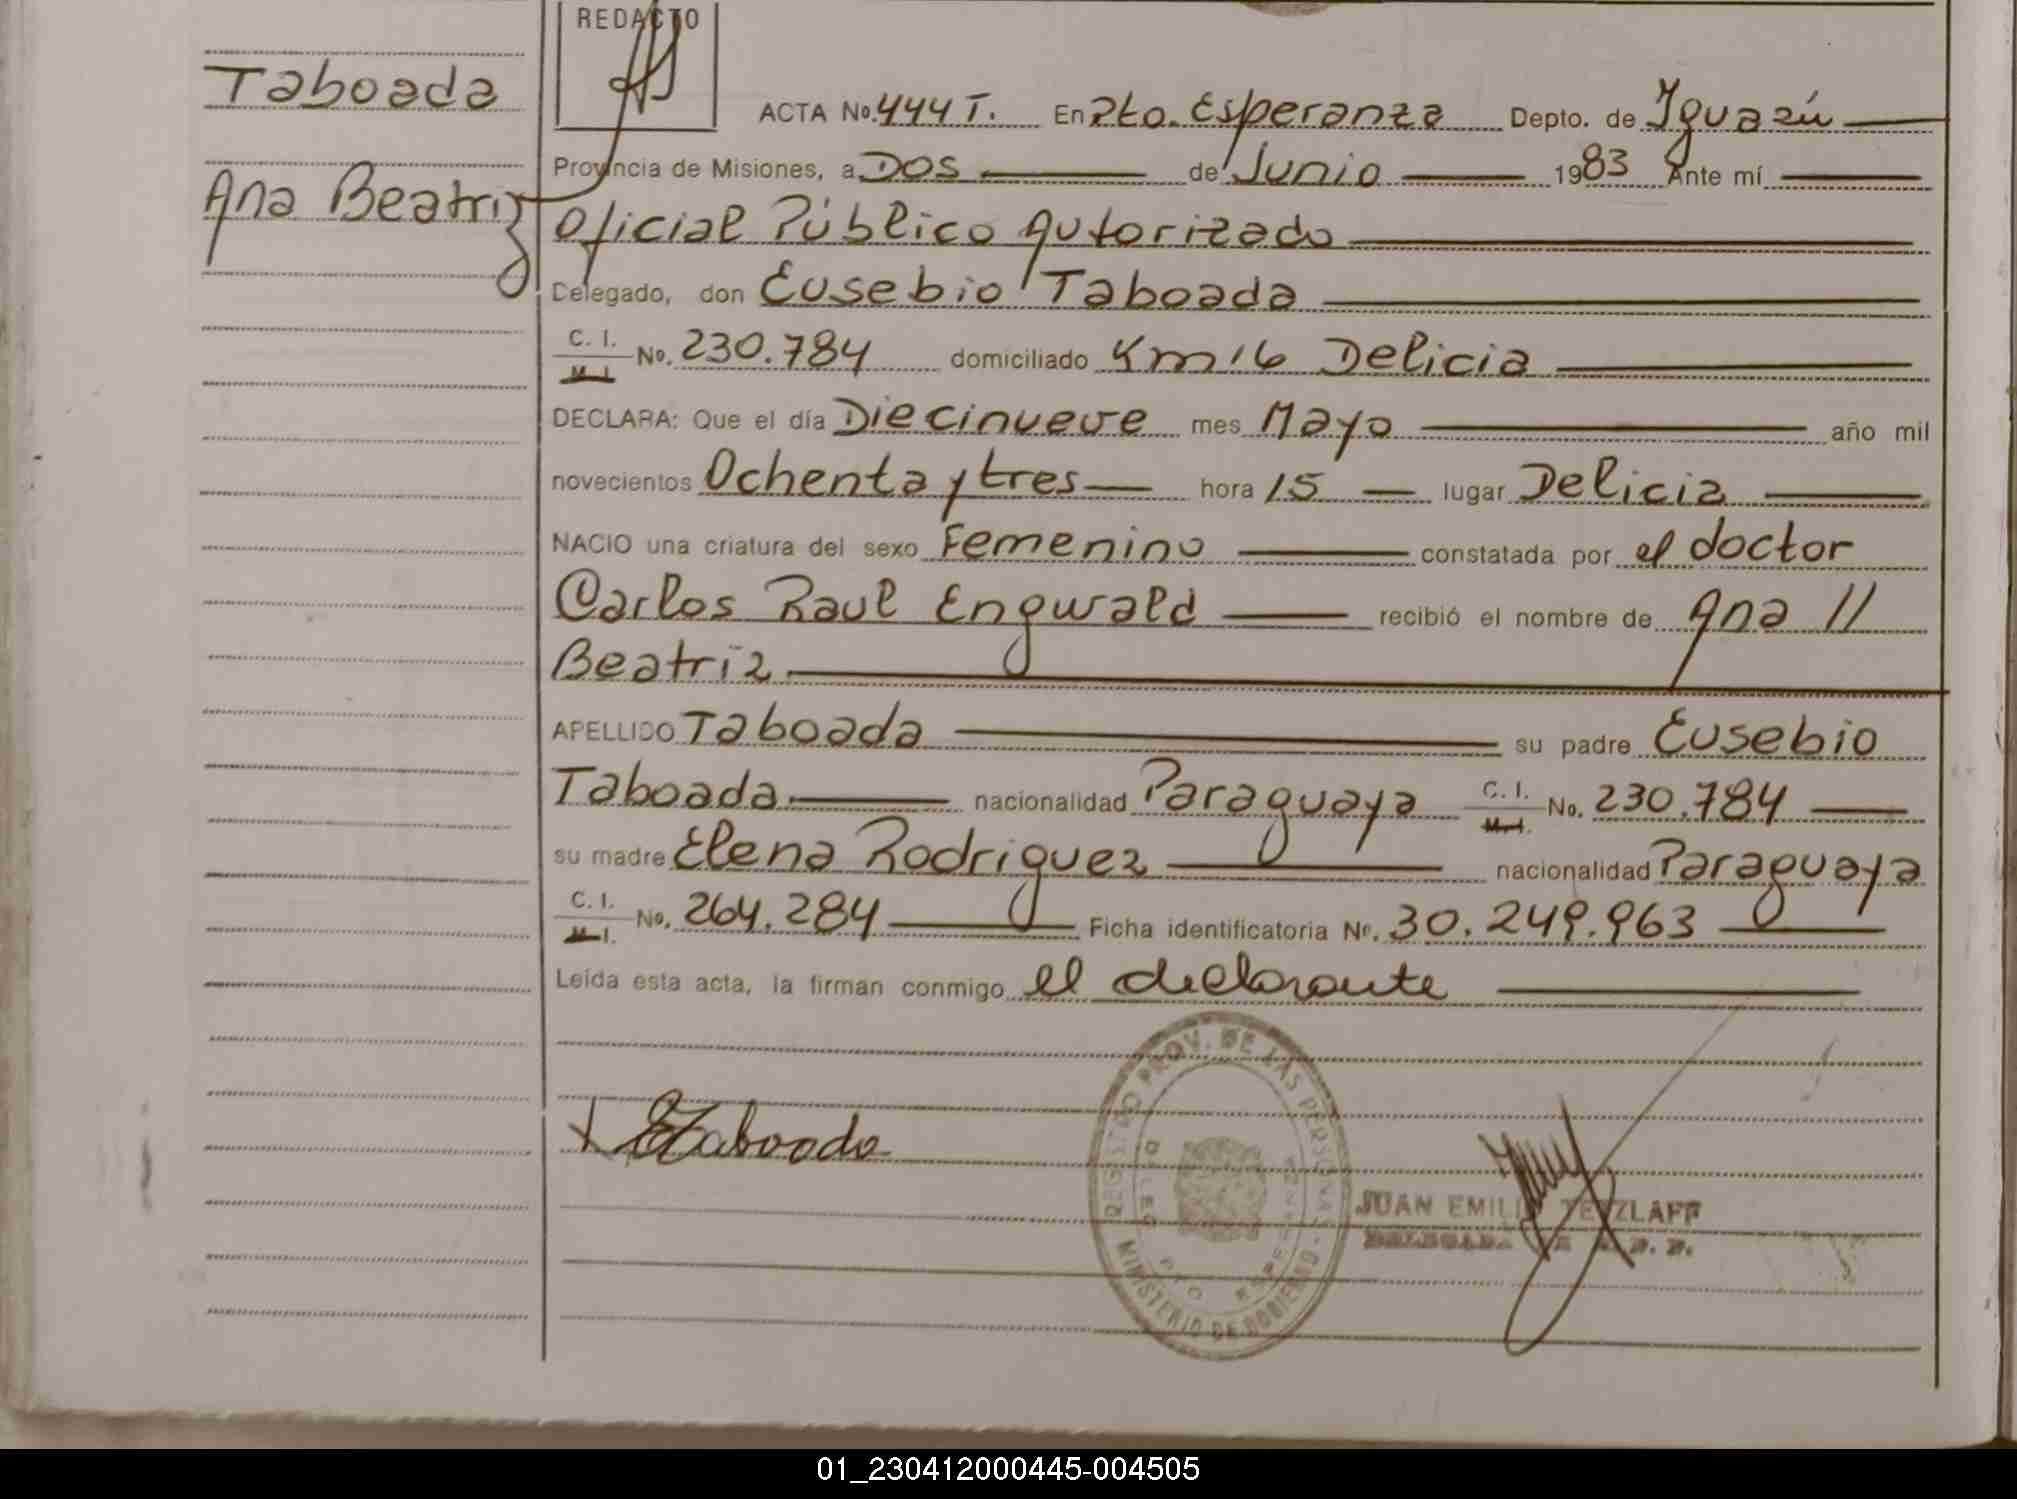 REDACTO
Taboada
Ana Beatriz
ACTA No. 444 T. En Pto. Esperanza Depto. de Iguazú
Provincia de Misiones, a Dos de Junio 1983 Ante mí
Oficial Público Autorizado
Delegado, don Eusebio Taboada
C. I. M. I. No. 230.784 domiciliado Km 16 Delicia
DECLARA: Que el día Diecinueve mes Mayo año mil
novecientos Ochenta y tres hora 15 lugar Delicia
NACIO una criatura del sexo Femenino constatada por el doctor
Carlos Raul Engwald recibió el nombre de Ana //
Beatriz
APELLIDO Taboada su padre Eusebio
Taboada nacionalidad Paraguaya C. I. M. I. No. 230.784
su madre Elena Rodriguez nacionalidad Paraguaya
C. I. M. I. No. 264.284 Ficha identificatoria No. 30.249.963
Leída esta acta, la firman conmigo el declarante
REGISTRO PROV. DE LAS PERSONAS - MINISTERIO DE GOBIERNO -
DELEG. PTO ESPERANZA
ETaboada
JUAN EMILIO TETZLAFF
01_230412000445-004505